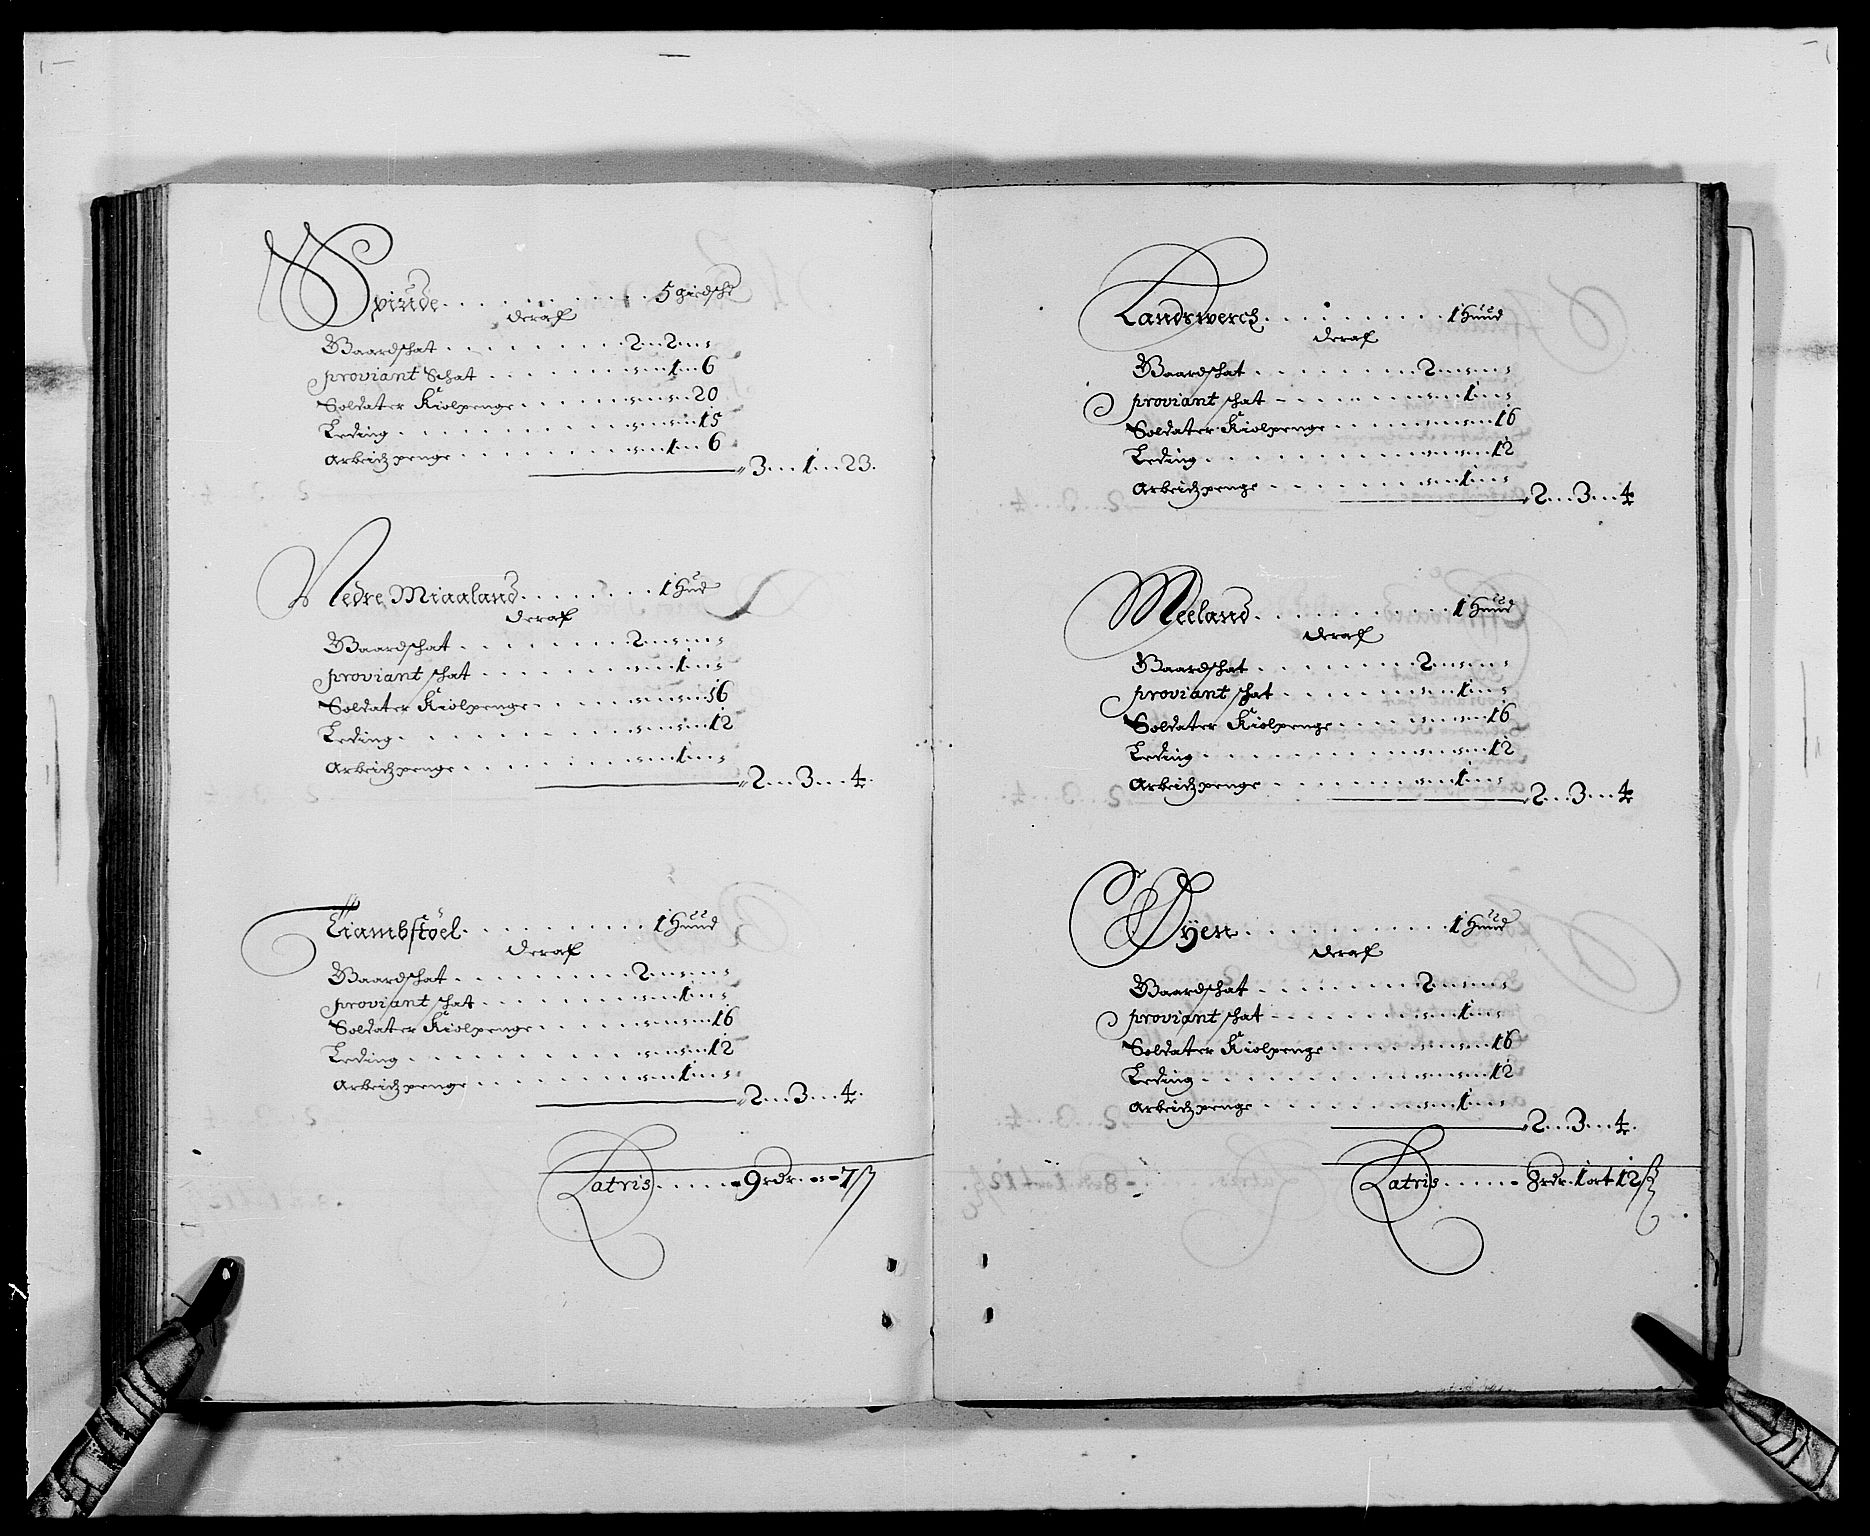 Spirude . . . . . . . . . . . 5 giedsche
deraf
Gaardschat . . . . . . . . . 2 . . 2 . . "
proviant Schat . . . . . . " . . 1 . . 6
Soldater Kiolpenge . . . . . " . . " . . 20
Leding . . . . . . . . . " . . " . . 15
Arbeidzpenge . . . . . . . " . . 1 . . 6
3 . . 1 . . 23.
Nedre Miaaland . . . . . . . 1 Hud
deraf
Gaardschat . . . . . . . . 2 . . " . . "
proviant schat . . . . . . . " . . 1 . . "
Soldater Kiolpenge . . . . . " . . " . . 16
Leding . . . . . . . . . " . . " . . 12
Arbeidzpenge . . . . . . . " . . 1 . . "
2 . . . 3 . . . 4.
Tiambstøel . . . . . . . . . 1 Huud
deraf
Gaardschat . . . . . . . . 2 . . " . . "
proviant schat . . . . . . . " . . 1 . . "
Soldater Kiolpenge . . . . . " . . " . . 16
Leding . . . . . . . . . " . . " . . 12
Arbeidzpenge . . . . . . . " . . 1 . . "
2 . . . 3 . . . 4.
Latris . . . . . 9 rdr. - " - 7 ß
Landswerch . . . . . . . . . 1 Huud
deraf
Gaardschat . . . . . . . . 2 . . " . . "
proviant schat . . . . . . . " . . 1 . . "
Soldater Kiolpenge . . . . . " . . " . . 16
Leding . . . . . . . . . " . . " . . 12
Arbeidzpenge . . . . . . . " . . 1 . . "
2 . . . 3 . . . 4
Meeland . . . . . . . . . . 1 Huud
deraf
Gaardschat . . . . . . . . 2 . . " . . "
proviant schat . . . . . . . " . . 1 . . "
Soldater Kiolpenge . . . . . " . . " . . 16
Leding . . . . . . . . . " . . " . . 12
Arbeidzpenge . . . . . . . " . . 1 . . "
2 . . . 3 . . . 4
Øyen . . . . . . . . . . . 1 Huud
deraf
Gaardschat . . . . . . . . 2 . . " . . "
proviant schat . . . . . . . " . . 1 . . "
Soldater Kiolpenge . . . . . " . . " . . 16
Leding . . . . . . . . . " . . " . . 12
Arbeidzpenge . . . . . . . " . . 1 . . "
2 . . . 3 . . . 4.
Latris . . . . . 8 rdr. 1 ort 12 ß